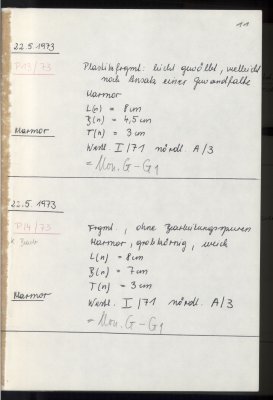 11
22.5.1973
P13/73
Plastikfrgmt: leicht gewölbt, vielleicht
noch Ansatz einer Gewandfalte
Marmor
L(n) = 8cm
B(n) = 4,5cm
Marmor T(n) = 3cm
Westl. I/71 nördl. A/3
= Mon. G-G1
22.5.1973
P14/73
Frgmt., ohne Bearbeitungsspuren
Marmor, grobkörnig, weich
L(n) = 8cm
B(n) = 7cm
T(n) = 3cm
Marmor Westl. I/71 nördl. A/3
= Mon. G-G1